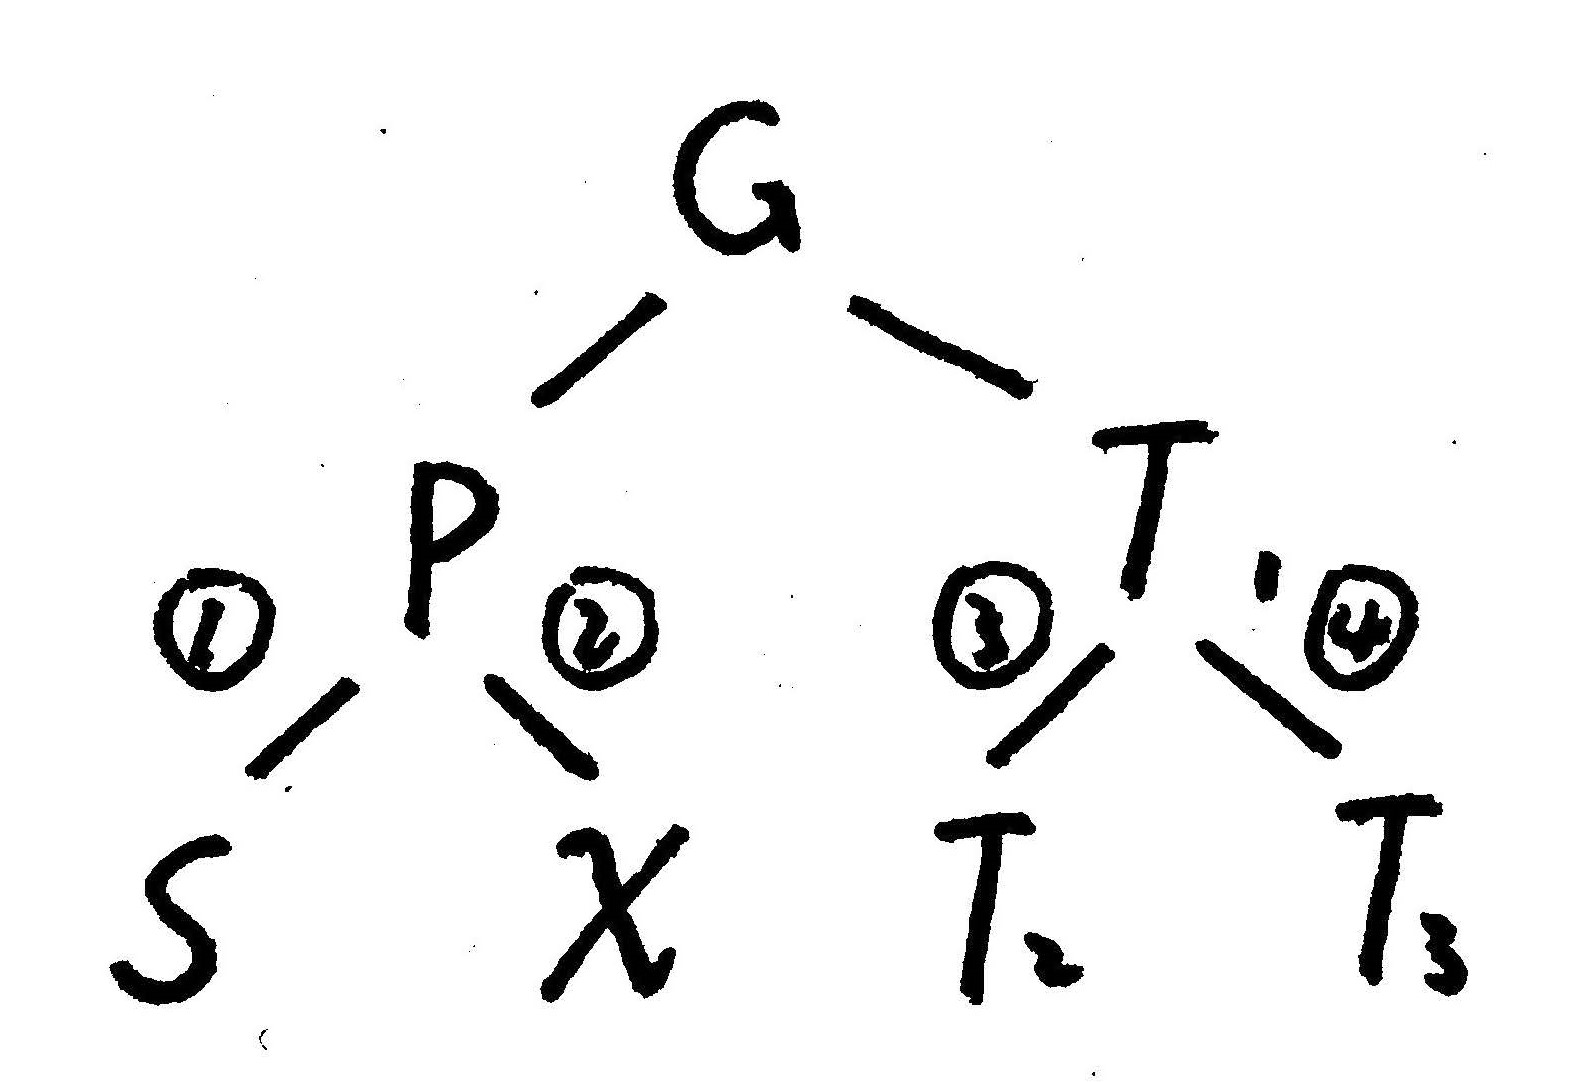 G
P T'
① ② ③ ④
S X T₂ T₃